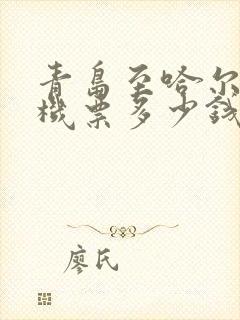 青島至哈尔
機票多少錢
廖氏